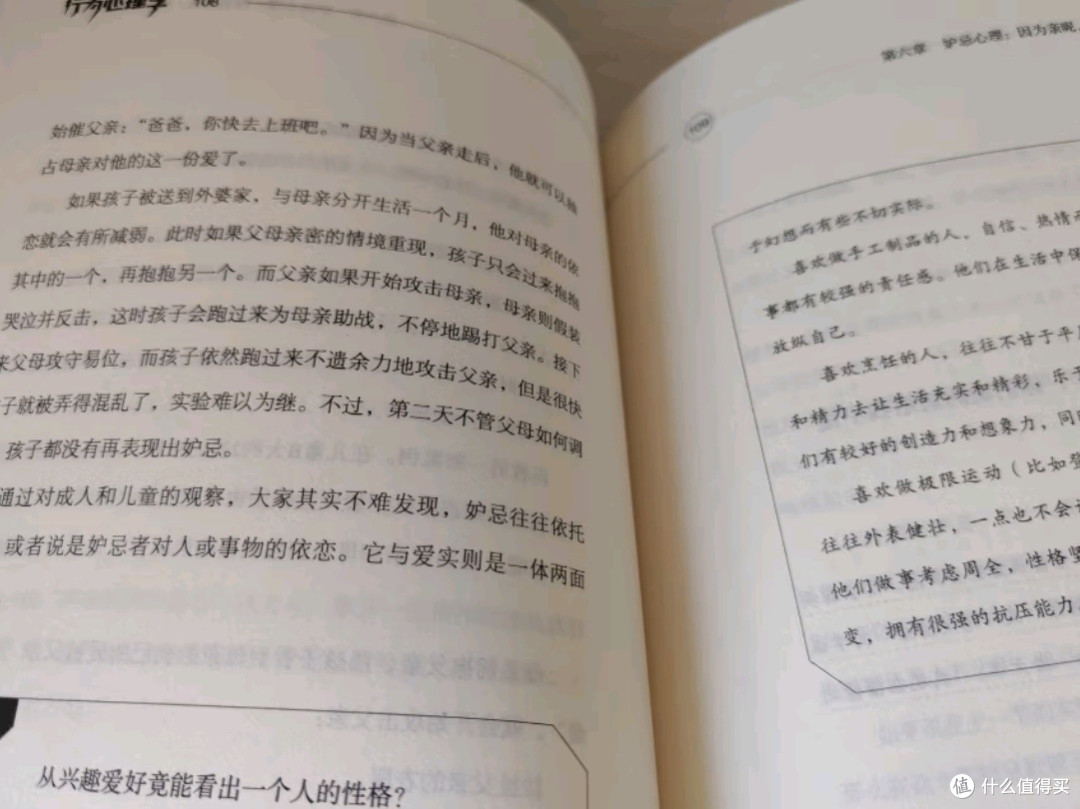 行为心理学 108
始催父亲：“爸爸，你快去上班吧。”因为当父亲走后，他就可以独
占母亲对他的这一份爱了。
如果孩子被送到外婆家，与母亲分开生活一个月，他对母亲的依
恋就会有所减弱。此时如果父母亲密的情境重现，孩子只会过来抱抱
其中的一个，再抱抱另一个。而父亲如果开始攻击母亲，母亲则假装
哭泣并反击，这时孩子会跑过来为母亲助战，不停地踢打父亲。接下
来父母攻守易位，而孩子依然跑过来不遗余力地攻击父亲，但是很快
子就被弄得混乱了，实验难以为继。不过，第二天不管父母如何调
孩子都没有再表现出妒忌。
通过对成人和儿童的观察，大家其实不难发现，妒忌往往依托
或者说是妒忌者对人或事物的依恋。它与爱实则是一体两面
从兴趣爱好竟能看出一个人的性格？
第六章 妒忌心理：因为亲昵，
109
于幻想而有些不切实际。
喜欢做手工制品的人，自信、热情而
事都有较强的责任感。他们在生活中保
放纵自己。
喜欢烹饪的人，往往不甘于平
和精力去让生活充实和精彩，乐于
们有较好的创造力和想象力，同
喜欢做极限运动（比如登
往往外表健壮，一点也不会
他们做事考虑周全，性格坚
变，拥有很强的抗压能力
值 什么值得买